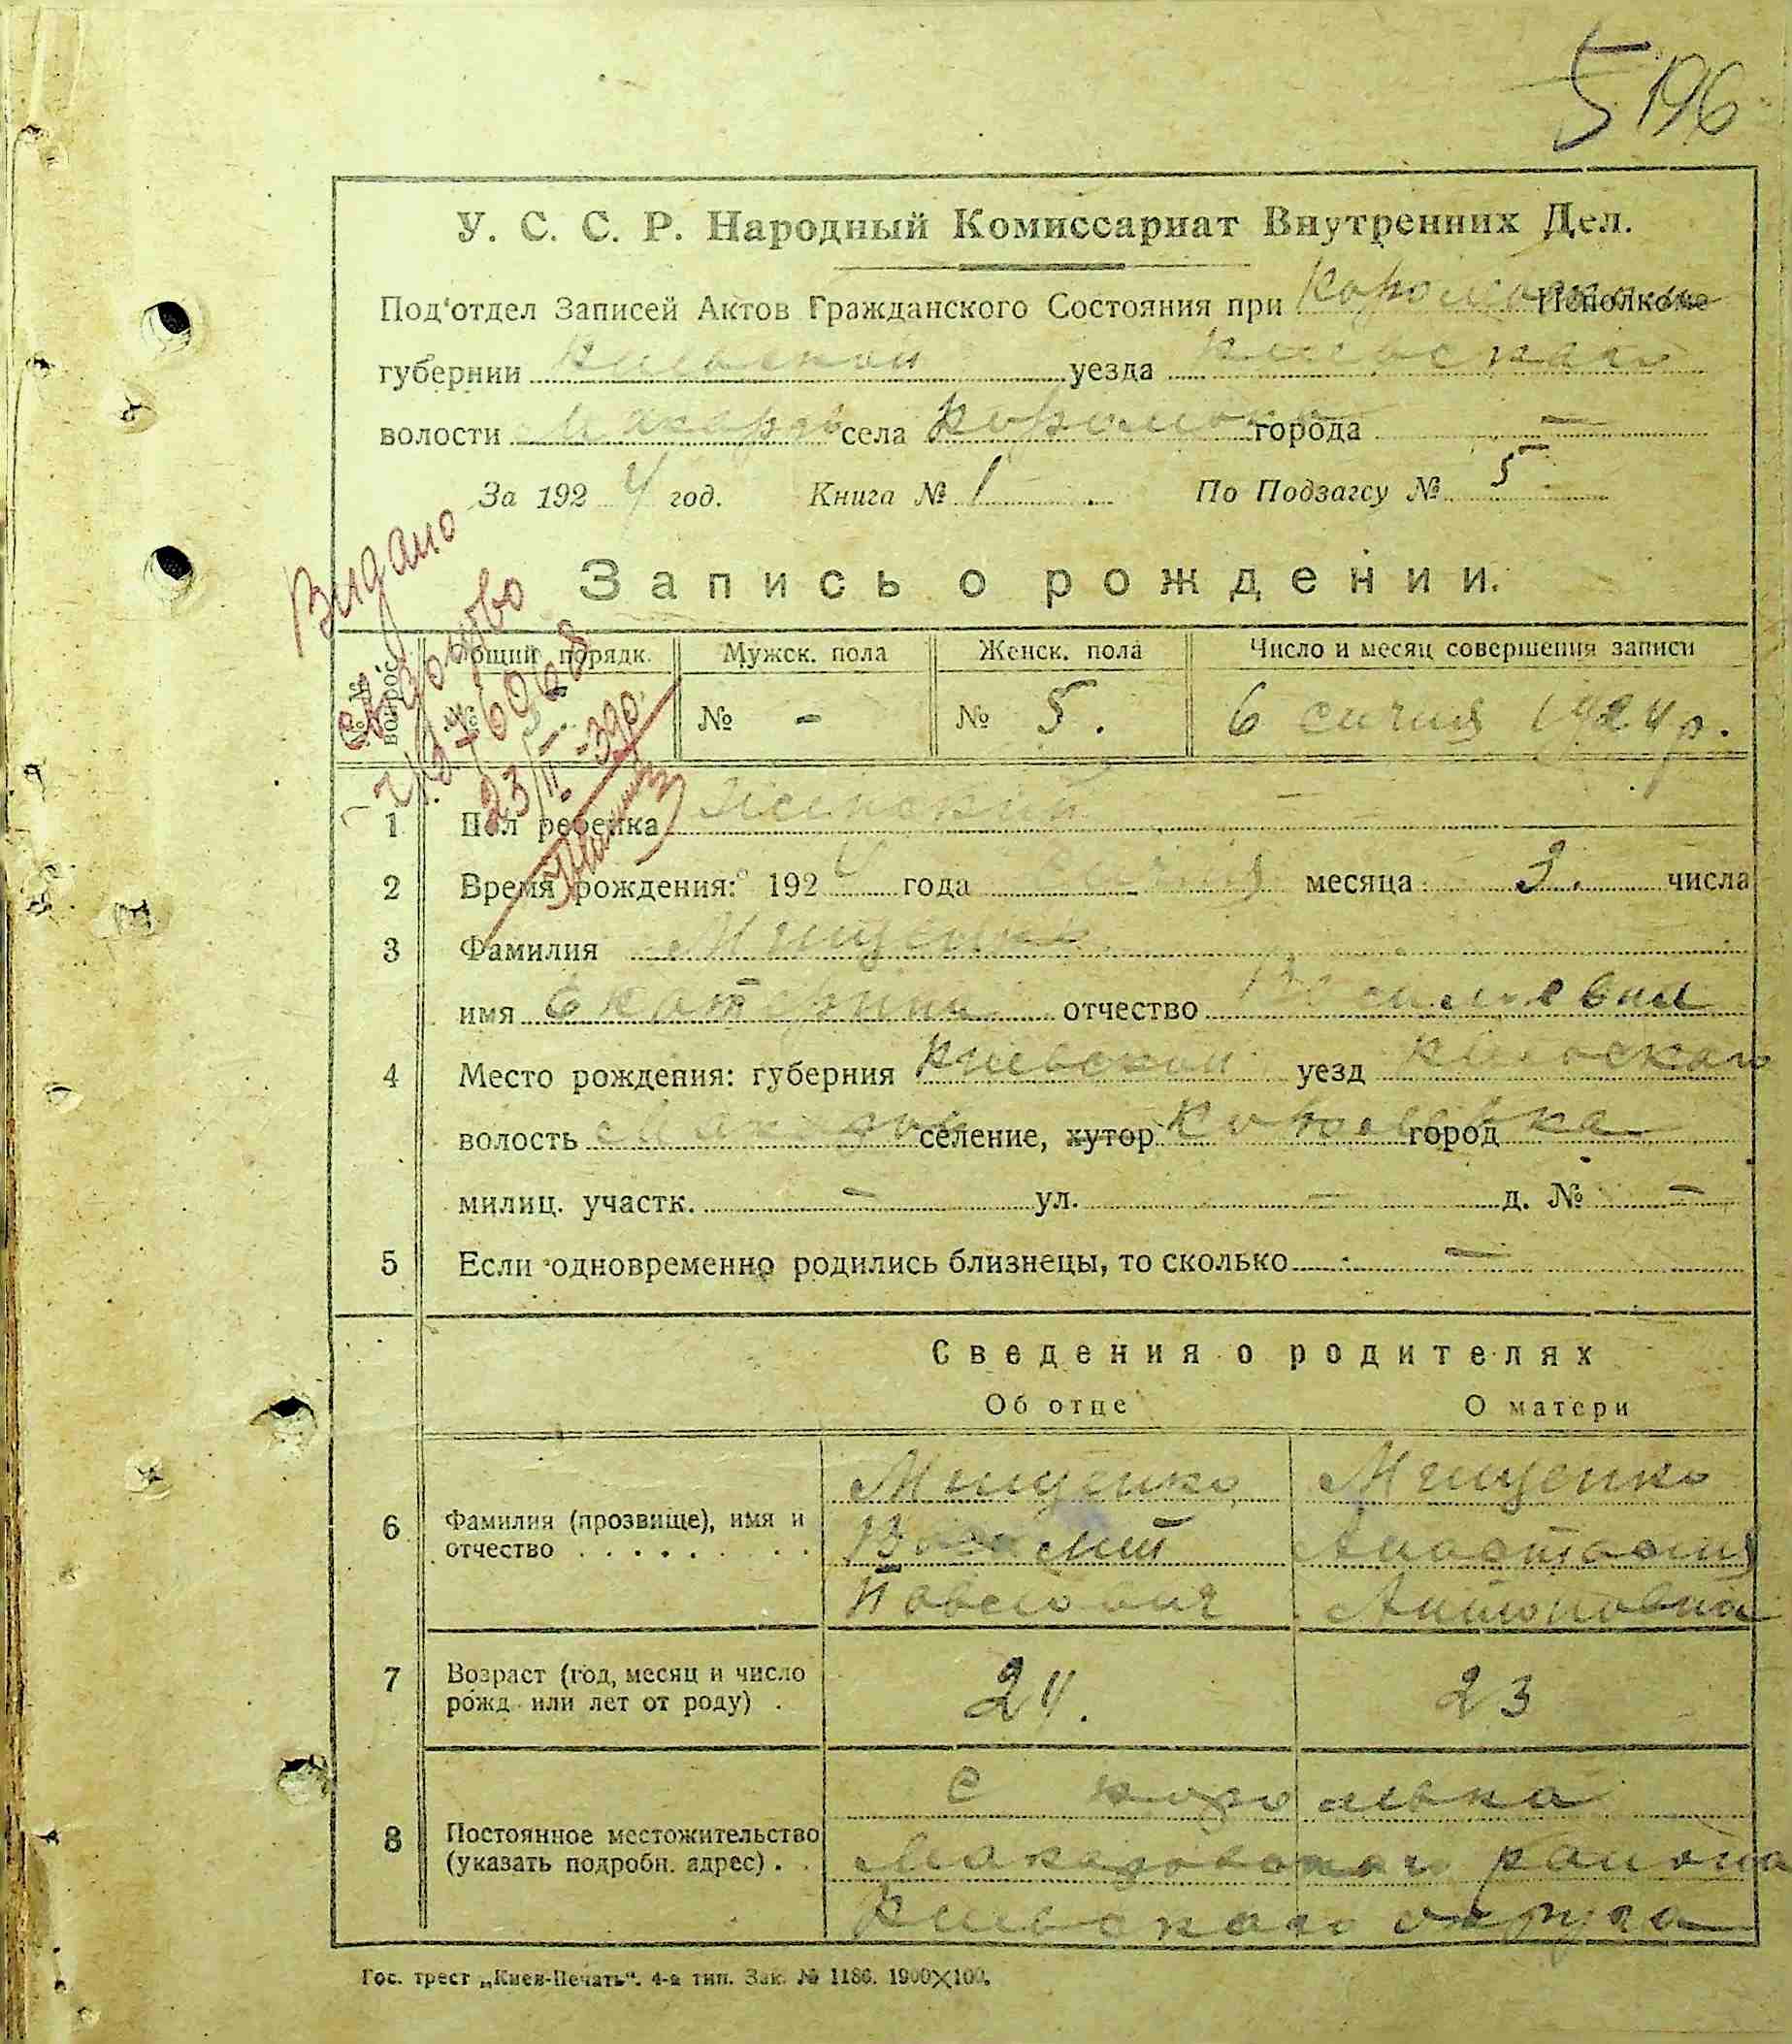 5 196
У. С. С. Р. Народный Комиссариат Внутренних Дел.
Под'отдел Записей Актов Гражданского Состояния при Исполкоме
губернии Киевской уезда Киевскаго
волости Макаров села города —
За 1924 год. Книга № 1 По Подзагсу № 5
Видано
свідоцтво
23/II-39р.
Запись о рождении.
№№ вопрос. Общий порядк. Мужск. пола Женск. пола Число и месяц совершения записи
№ 5 № - № 5. 6 сичня 1924 р.
1 Пол ребенка Женский —
2 Время рождения: 1924 года сичня месяца 3. числа
3 Фамилия Мищенко
имя Екатерина отчество Василевна
4 Место рождения: губерния Киевской уезд Киевскаго
волость Макаров селение, хутор город
милиц. участк. — ул. — д. № —
5 Если одновременно родились близнецы, то сколько —
Сведения о родителях
Об отце О матери
6 Фамилия (прозвище), имя и отчество Мищенко Мищенко
Василий Анастасия
Павлович Антоновна
7 Возраст (год, месяц и число рожд. или лет от роду) 24. 23
8 Постоянное местожительство (указать подробн. адрес) с
Макаровскаго района
Киевскаго округа
Гос. трест „Киев-Печать“. 4-я тип. Зак. № 1186. 1900×100.